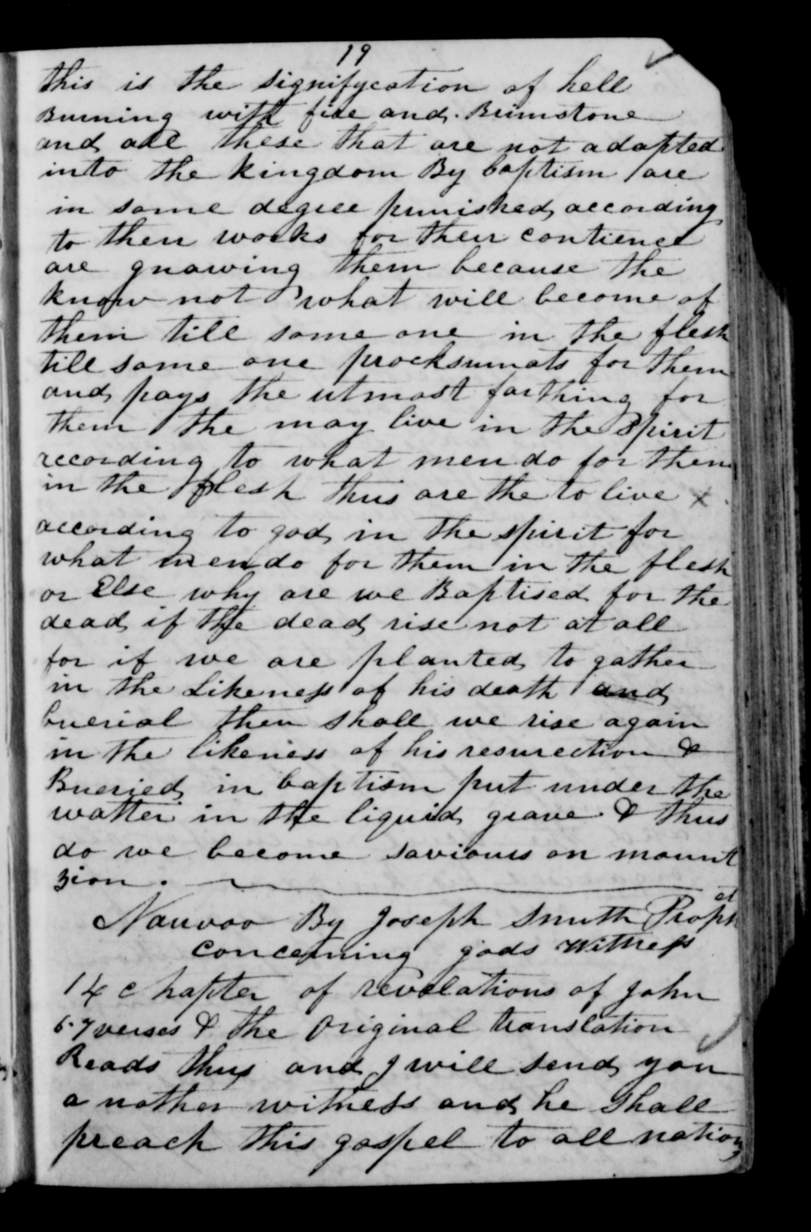 19
this is the signifycation of hell
Burning with fire and. Brimstone
and all these that are not adapted
into the kingdom By baptism are
in some degree punished according
to their works for their contience
are gnawing them because the
know not what will become of
them till some one in the flesh
till some one procksumats for them
and pays the utmost farthing for
them the may live in the Spirit
according to what men do for them
in the flesh thus are the to live x
according to god in the spirit for
what men do for them in the flesh
or Else why are we Baptised for the
dead if the dead rise not at all
for if we are planted to gather
in the Likeness of his death and
buerial then shall we rise again
in the likeness of his resurection &
Bueried in baptism put under the
watter in the liquid grave & thus
do we become saviours on mount
zion.
Nauvoo By Joseph Smith Prophet
concerning gods Witness
14 chapter of revolations of John
6.7 verses & the Original translation
Reads thus and I will send you
a nother witness and he shall
preach this gospel to all nations